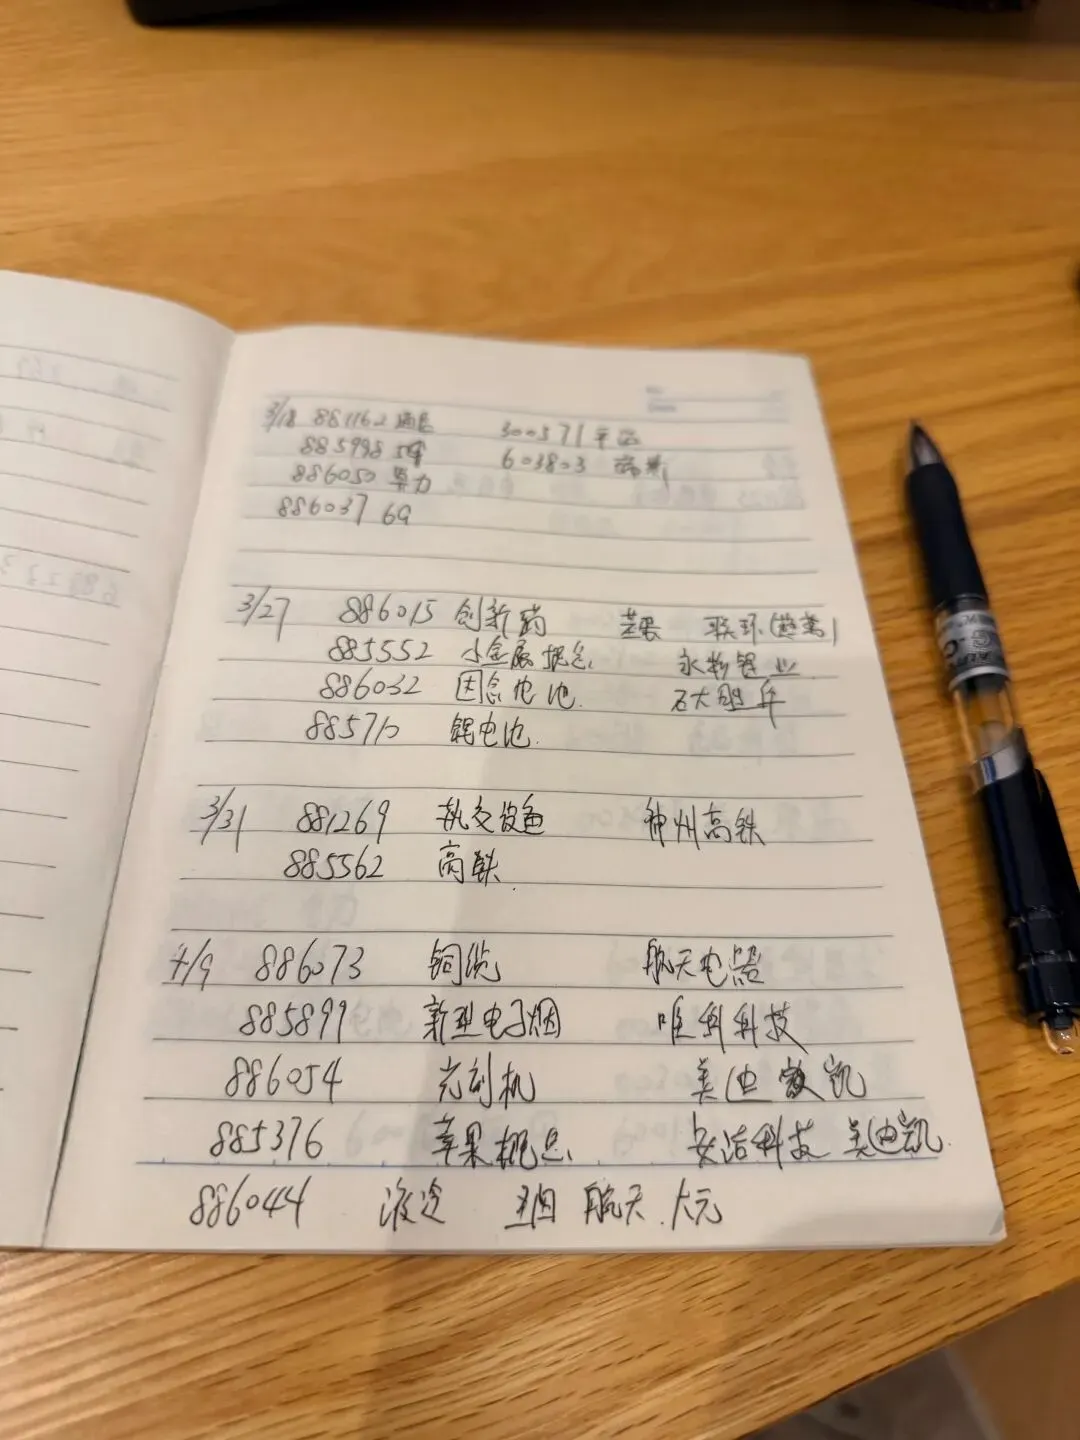 3/18 881162 通信 300571 平治
885998 5G 603803 瑞斯
886050 算力
886037 6G
3/27 886015 创新药 芝密 联环(药业)
885552 小金属概念 永杉锂业
886032 固态电池 石大胜华
885710 锂电池
3/31 881269 轨交设备 神州高铁
885562 高铁
4/9 886073 铜缆 航天电器
885899 新型电子烟 唯科科技
886054 光刻机 美迪凯
885376 苹果概念 安洁科技 美迪凯
886044 液冷 航天 大元